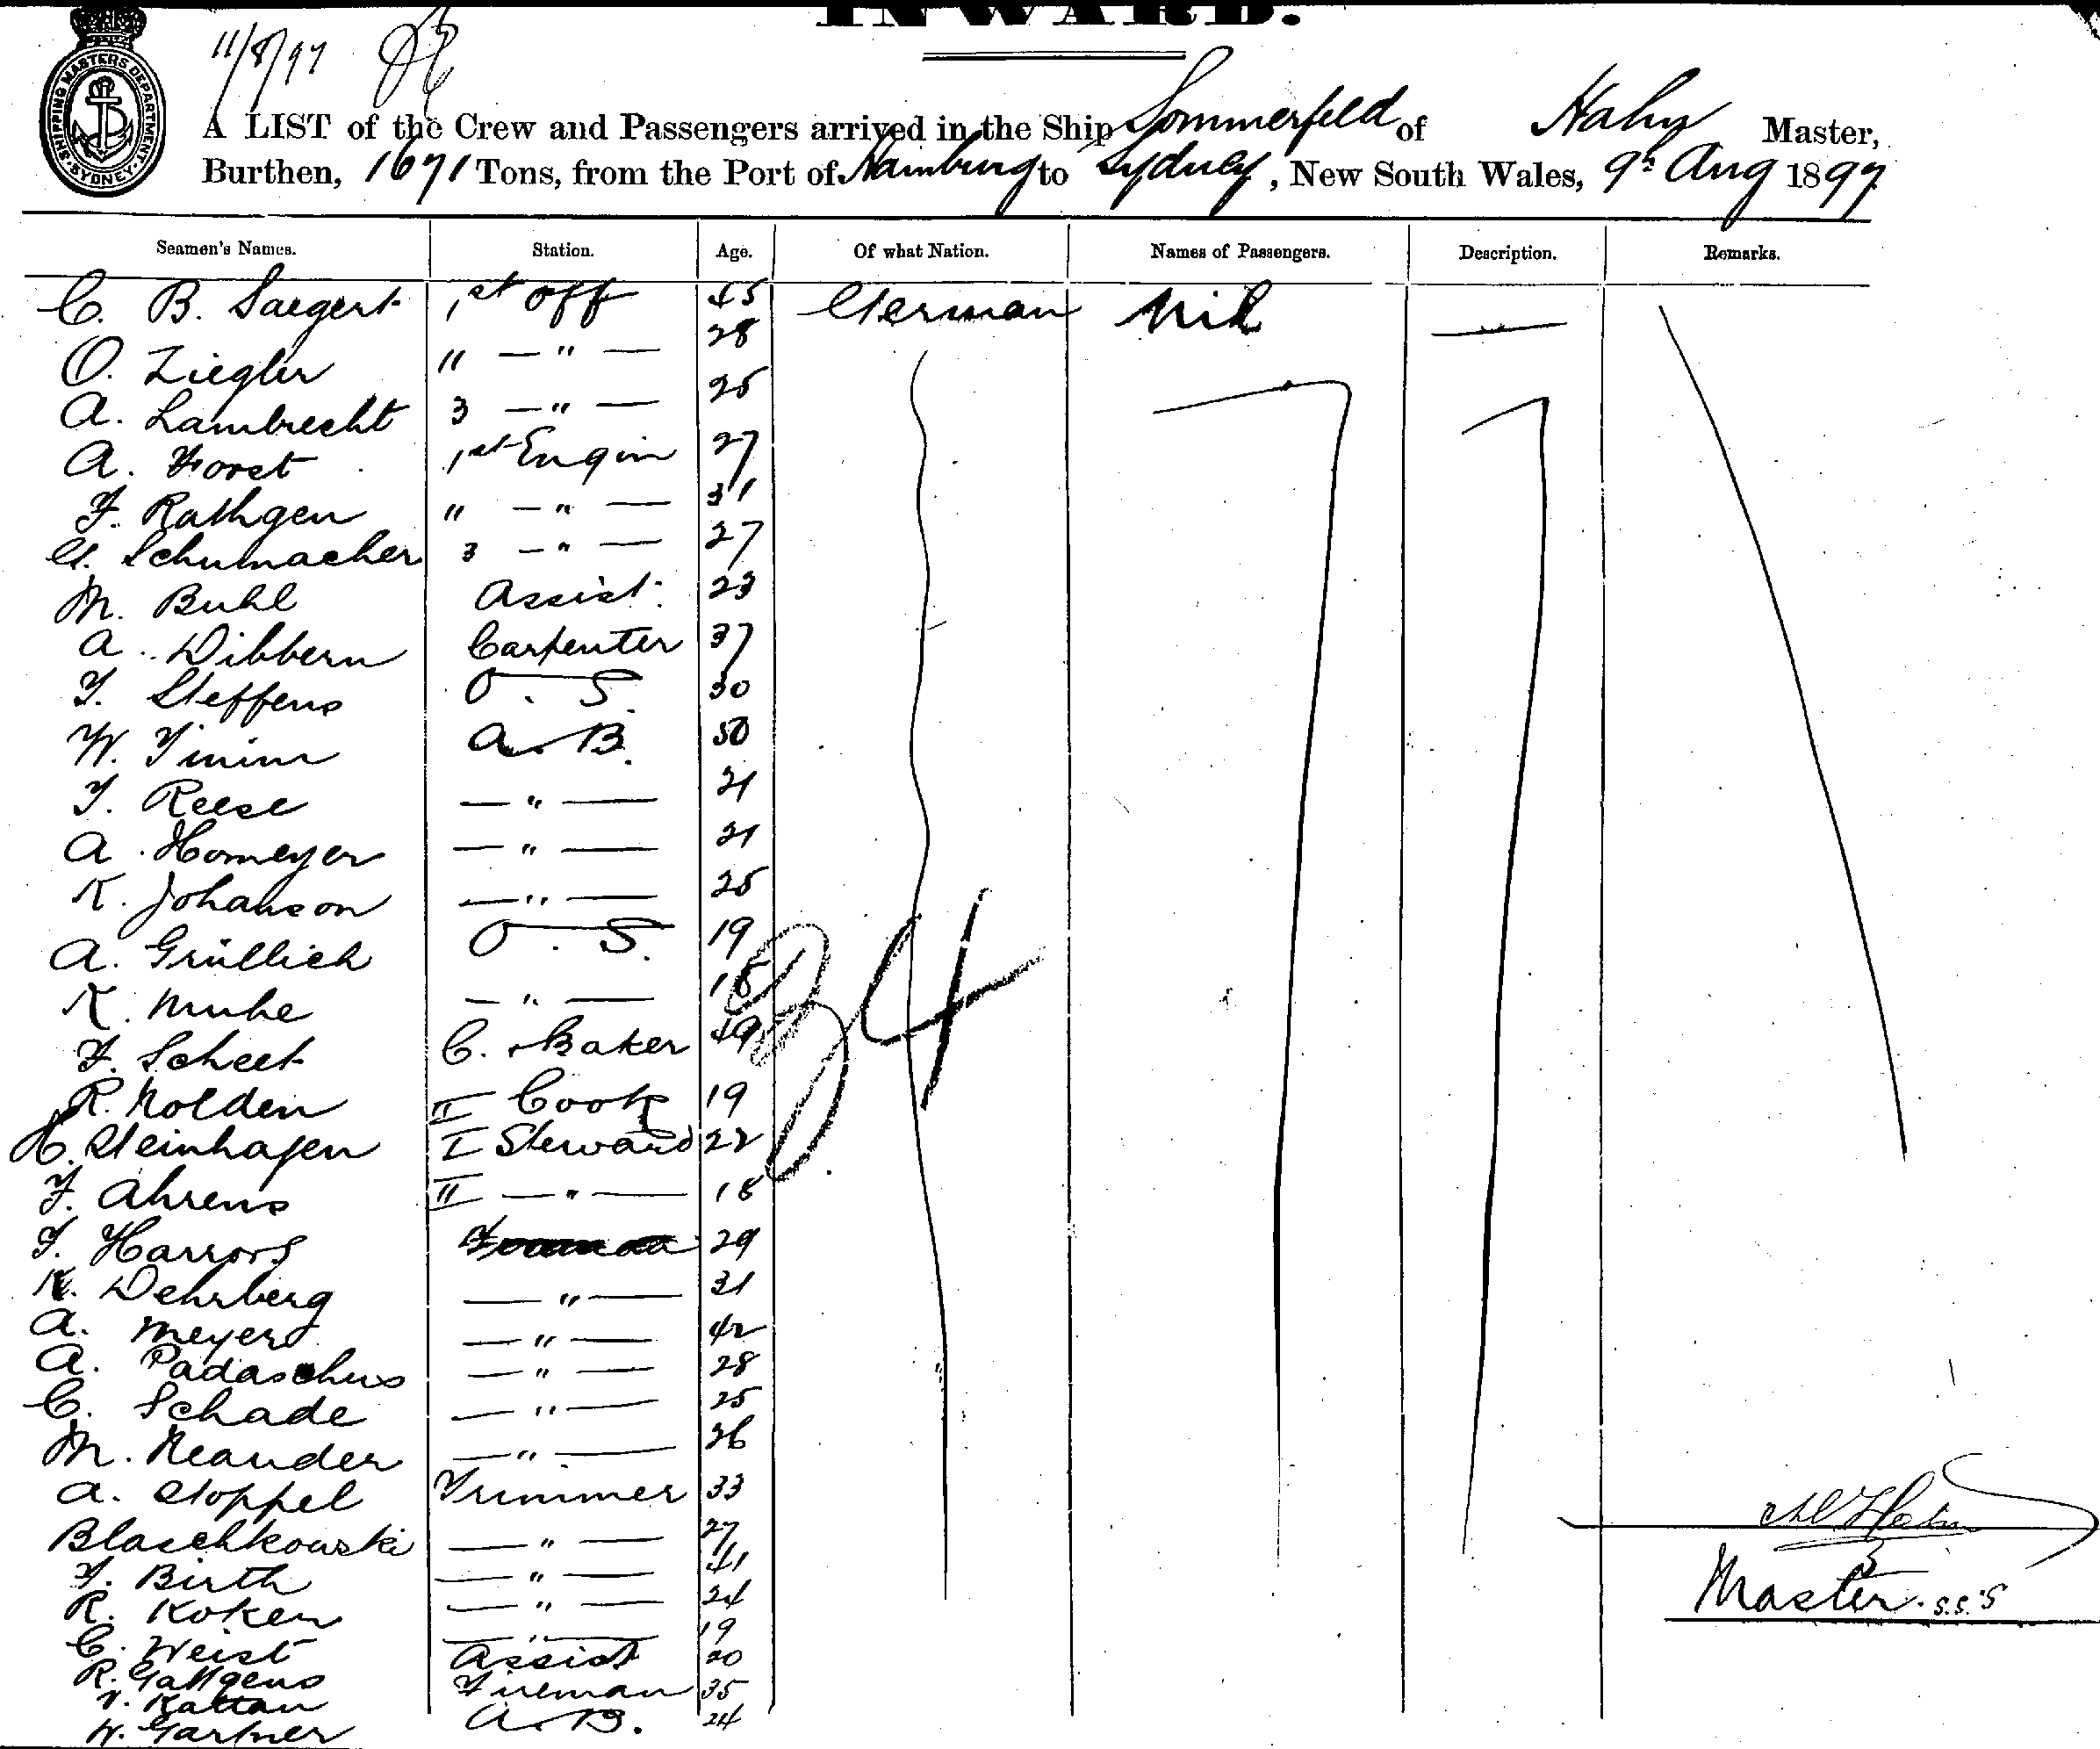 INWARD.
SHIPPING MASTERS DEPARTMENT SYDNEY
11/8/97
A LIST of the Crew and Passengers arrived in the Ship Sommerfeld of Hahn Master,
Burthen, 1671 Tons, from the Port of Hamburg to Sydney, New South Wales, 9th Aug 1897
Seamen's Names. Station. Age. Of what Nation. Names of Passengers. Description. Remarks.
C. B. Saegert 1st Off 45 German Nil
O. Ziegler " — " — 28
A. Lambrecht 3 — " — 25
A. Horst 1st Engin 27
F. Rathgen " — " — 31
G. Schumacher 3 — " — 27
M. Buhl Assist. 23
A. Dibbern Carpenter 37
J. Steffens O. S. 30
W. Timm A. B. 50
J. Reese — " — 21
A. Homeyer — " — 21
K. Johanson — " — 25
A. Grüllich O. S. 19
K. Muhe — " — 18
F. Scheet C. & Baker 49
R. Nolden II Cook 19
H. Steinhagen I Steward 22
F. Ahrens II — " — 18
J. Harrors 29
K. Dehrberg — " — 31
A. Meyer — " — 42
A. Padaschus — " — 28
C. Schade — " — 25
M. Neander — " — 26
A. Stoppel Trimmer 33
Blaschkowski — " — 27
F. Birth — " — 41
R. Koken — " — 24
C. Weist — " — 19
R. Gattgens Assist 20
V. Kattau Fireman 35
W. Gartner A. B. 24
34
Hahn
Master. S.S. S